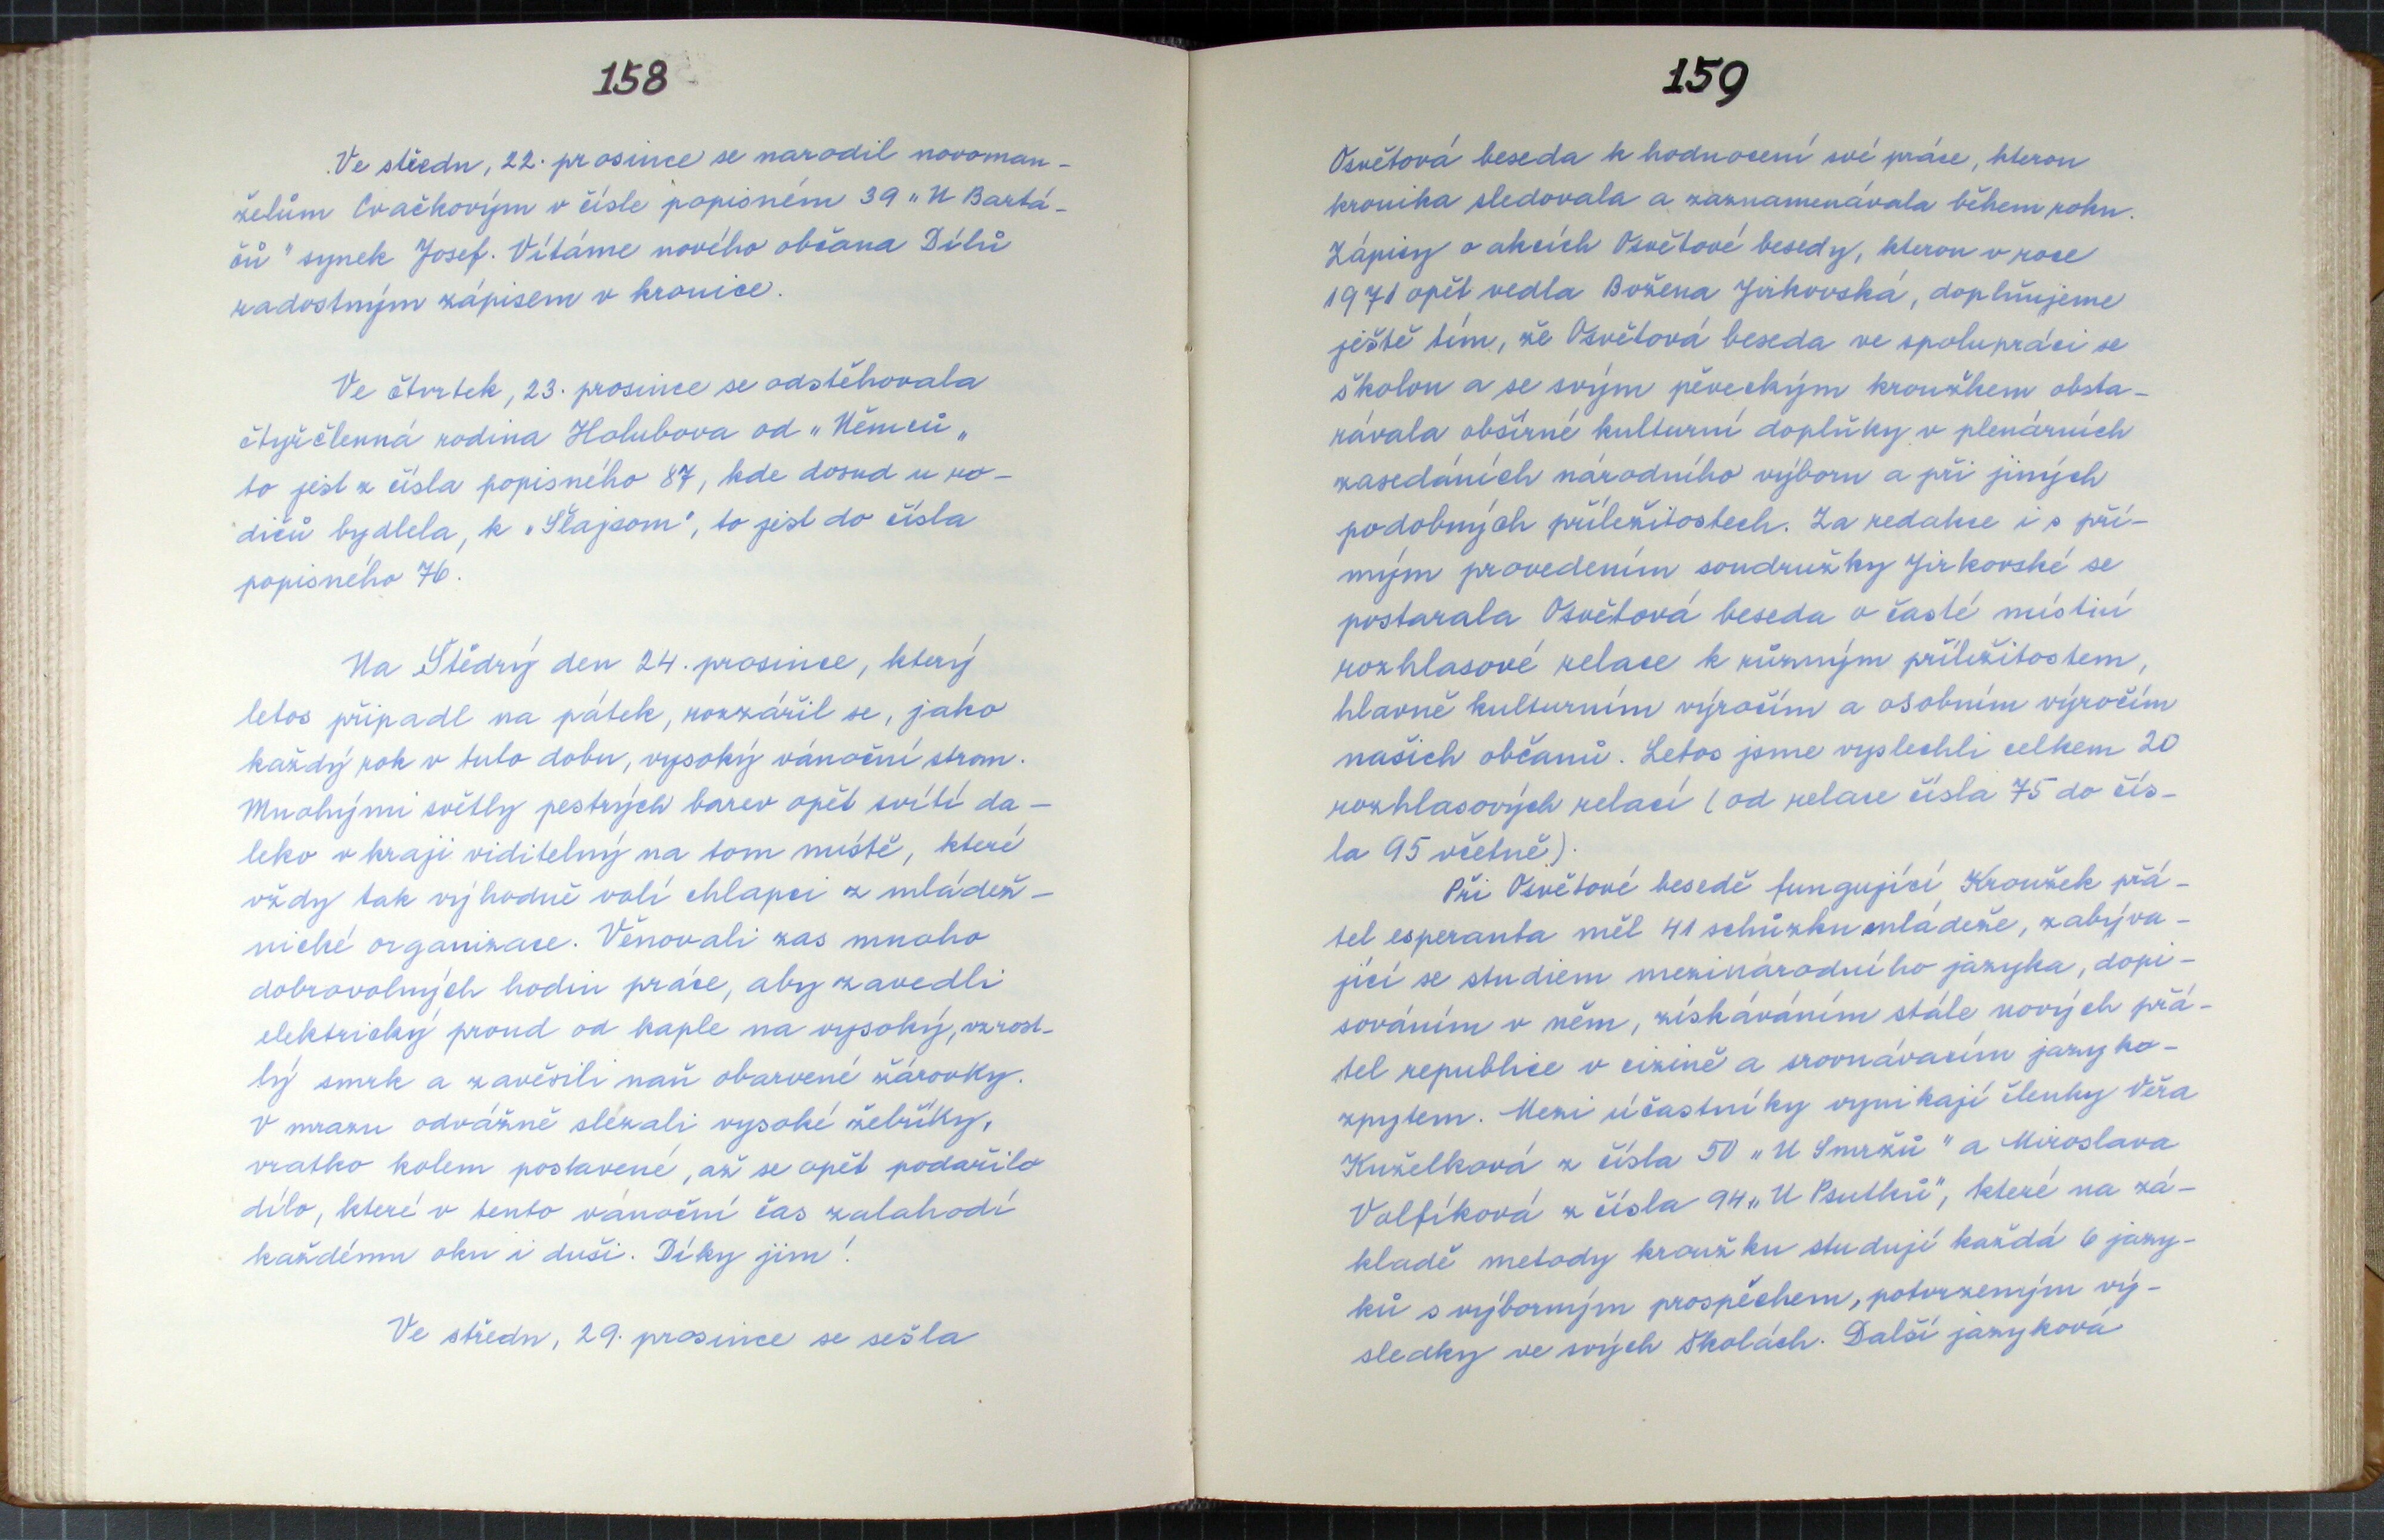 158
Ve středu, 22. prosince se narodil novoman-
želům Cvačkovým v čísle popisném 39 „U Bartá-
čů" synek Josef. Vítáme nového občana Dílů
radostným zápisem v kronice.
Ve čtvrtek, 23. prosince se odstěhovala
čtyřčlenná rodina Holubova od „Němců„
to jest z čísla popisného 87, kde dosud u ro-
dičů bydlela, k „Šlajsom", to jest do čísla
popisného 76.
Na Štědrý den 24. prosince, který
letos připadl na pátek, rozzářil se, jako
každý rok v tuto dobu, vysoký vánoční strom.
Mnohými světly pestrých barev opět svítí da-
leko v kraji viditelný na tom místě, které
vždy tak výhodně volí chlapci z mládež-
nické organizace. Věnovali zas mnoho
dobrovolných hodin práce, aby zavedli
elektrický proud od kaple na vysoký, vzrost-
lý smrk a zavěsili naň obarvené žárovky.
V mrazu odvážně slézali vysoké žebříky,
vratko kolem postavené, až se opět podařilo
dílo, které v tento vánoční čas zalahodí
každému oku i duši. Díky jim!
Ve středu, 29. prosince se sešla
159
Osvětová beseda k hodnocení své práce, kterou
kronika sledovala a zaznamenávala během roku.
Zápisy o akcích Osvětové besedy, kterou v roce
1971 opět vedla Božena Jirkovská, doplňujeme
ještě tím, že Osvětová beseda ve spolupráci se
školou a se svým pěveckým kroužkem obsta-
rávala obšírné kulturní doplňky v plenárních
zasedáních národního výboru a při jiných
podobných příležitostech. Za redakce i s pří-
mým provedením soudružky Jirkovské se
postarala Osvětová beseda o časté místní
rozhlasové relace k různým příležitostem,
hlavně kulturním výročím a osobním výročím
našich občanů. Letos jsme vyslechli celkem 20
rozhlasových relací (od relace čísla 75 do čís-
la 95 včetně).
Při Osvětové besedě fungující Kroužek přá-
tel esperanta měl 41 schůzku mládeže, zabýva-
jící se studiem mezinárodního jazyka, dopi-
sováním v něm, získáváním stále nových přá-
tel republice v cizině a srovnávacím jazyko-
zpytem. Mezi účastníky vynikají členky Věra
Kuželková z čísla 50 „U Smržů" a Miroslava
Volfíková z čísla 94 „U Psutků", které na zá-
kladě metody kroužku studují každá 6 jazy-
ků s výborným prospěchem, potvrzeným vý-
sledky ve svých školách. Další jazyková